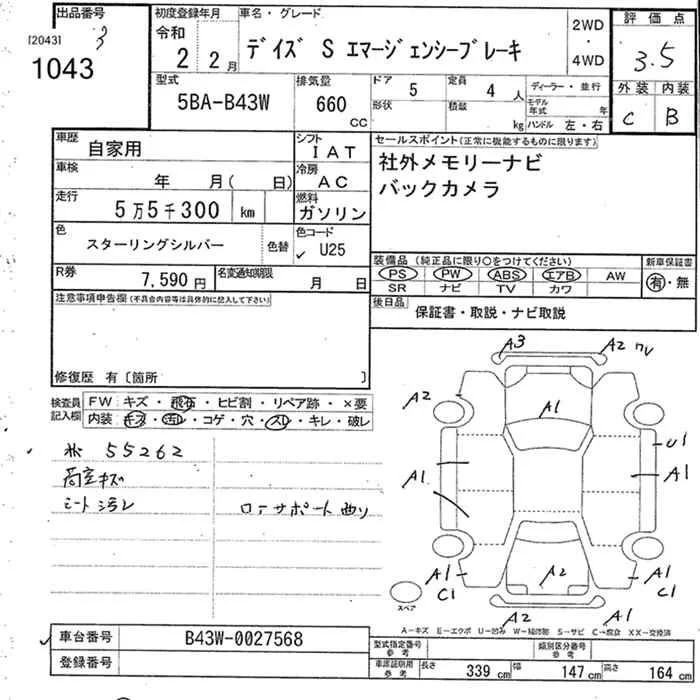 出品番号
[2043]
3
1043
初度登録年月
令和
2 2月
車名・グレード
デイズ S エマージェンシーブレーキ
2WD
・
4WD
評価点
3.5
外装 内装
C B
型式
5BA-B43W
排気量
660
CC
ドア 5
形状
定員 4 人
積載 kg
ディーラー・並行
モデル年式 年
ハンドル 左・右
車歴
自家用
車検
年 月( 日)
走行
5万5千300 km
色
スターリングシルバー
色替
R券
7,590円
名変通知期限
月 日
シフト
IAT
冷房
AC
燃料
ガソリン
色コード
U25
セールスポイント(正常に機能するものに限ります)
社外メモリーナビ
バックカメラ
装備品(純正品に限り○をつけてください)
PS PW ABS エアB AW
SR ナビ TV カワ
新車保証書
有・無
後日品
保証書・取説・ナビ取説
注意事項申告欄(不具合内容等は具体的に記入して下さい)
修復歴 有〔箇所 〕
検査員
記入欄
FW キズ・飛石・ヒビ割・リペア跡・×要
内装 キズ・汚レ・コゲ・穴・スレ・キレ・破レ
55262
シート汚レ
A3
A2
A2
A1
U1
A1
A1
A1
C1
A2
A1
C1
A2
A1
スペア
A－キズ E－エクボ U－凹み S－サビ C－腐食 XX－交換済
車台番号
B43W-0027568
登録番号
型式指定番号
参考
類別区分番号
参考
車庫証明用
参考
長さ 339 cm 幅 147 cm 高さ 164 cm